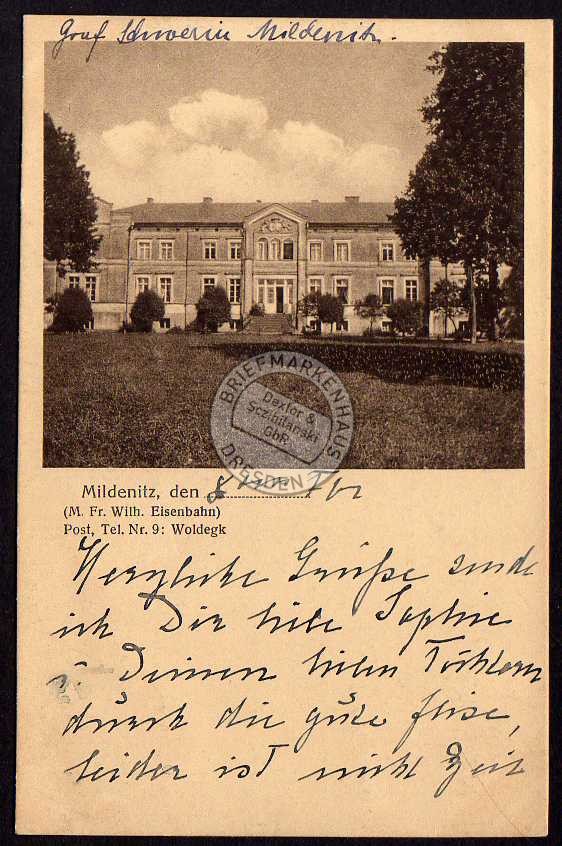 Graf Schwerin Mildenitz.
BRIEFMARKENHAUS
Dexler &
GbR
DRESDEN
Mildenitz, den 8
(M. Fr. Wilh. Eisenbahn)
Post, Tel. Nr. 9: Woldegk
Herzliche Grüße sende
ich Dir liebe Sophie
u. Deinen lieben Töchtern
durch die gute
leider ist nicht Zeit